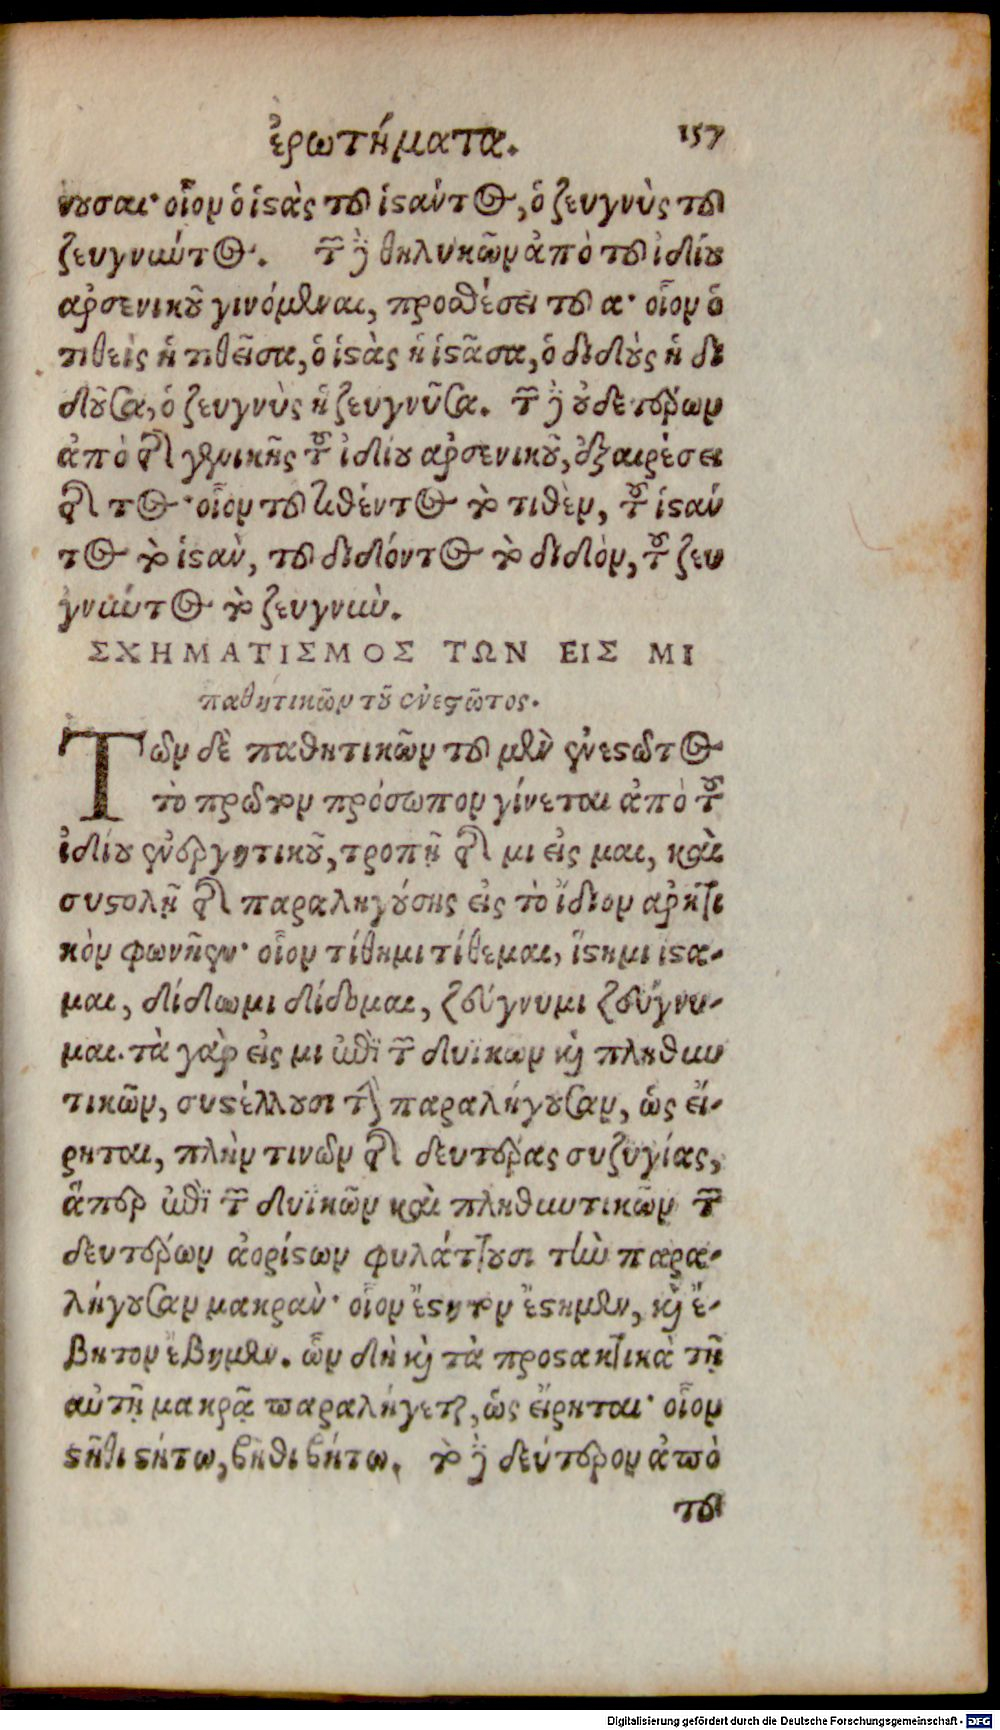 ἐρωτήματα. 157
νουσαι· οἷον ὁ ἱστὰς τοῦ ἱστάντος, ὁ ζευγνὺς τοῦ
ζευγνύντος. τῶν δὲ θηλυκῶν ἀπὸ τοῦ ἰδίου
ἀρσενικοῦ γινόμεναι, προσθέσει τοῦ α· οἷον ὁ
τιθεὶς ἡ τιθεῖσα, ὁ ἱστὰς ἡ ἱστᾶσα, ὁ διδοὺς ἡ δι
δοῦσα, ὁ ζευγνὺς ἡ ζευγνῦσα. τῶν δὲ οὐδετέρων
ἀπὸ τῆς γενικῆς τοῦ ἰδίου ἀρσενικοῦ, ἐξαιρέσει
τῆς τος· οἷον τοῦ τιθέντος τὸ τιθὲν, τοῦ ἱστάν
τος τὸ ἱστὰν, τοῦ διδόντος τὸ διδὸν, τοῦ ζευ
γνύντος τὸ ζευγνύν.
ΣΧΗΜΑΤΙΣΜΟΣ ΤΩΝ ΕΙΣ ΜΙ
παθητικῶν τοῦ ἐνεστῶτος.
Των δὲ παθητικῶν τοῦ μὲν ἐνεστῶτος
τὸ πρῶτον πρόσωπον γίνεται ἀπὸ τοῦ
ἰδίου ἐνεργητικοῦ, τροπῇ τῆς μι εἰς μαι, καὶ
συστολῇ τῆς παραληγούσης εἰς τὸ ἴδιον ἀρκτι
κὸν φωνῆεν· οἷον τίθημι τίθεμαι, ἵστημι ἵστα-
μαι, δίδωμι δίδομαι, ζεύγνυμι ζεύγνυ-
μαι. τὰ γὰρ εἰς μι ἐπὶ τῶν δυϊκῶν καὶ πληθυν
τικῶν, συστέλλουσι τὴν παραλήγουσαν, ὡς εἴ-
ρηται, πλὴν τινῶν τῆς δευτέρας συζυγίας,
ἅπερ ἐπὶ τῶν δυϊκῶν καὶ πληθυντικῶν τῶν
δευτέρων ἀορίστων φυλάττουσι τὴν παρα-
λήγουσαν μακράν· οἷον ἔστητον ἔστημεν, καὶ ἔ-
βητον ἔβημεν. ὧν δὴ καὶ τὰ προστακτικὰ τῇ
αὐτῇ μακρᾷ παραλήγεται, ὡς εἴρηται· οἷον
στῆθι στήτω, βῆθι βήτω. τὸ δὲ δεύτερον ἀπὸ
τοῦ
Digitalisierung gefördert durch die Deutsche Forschungsgemeinschaft - DFG